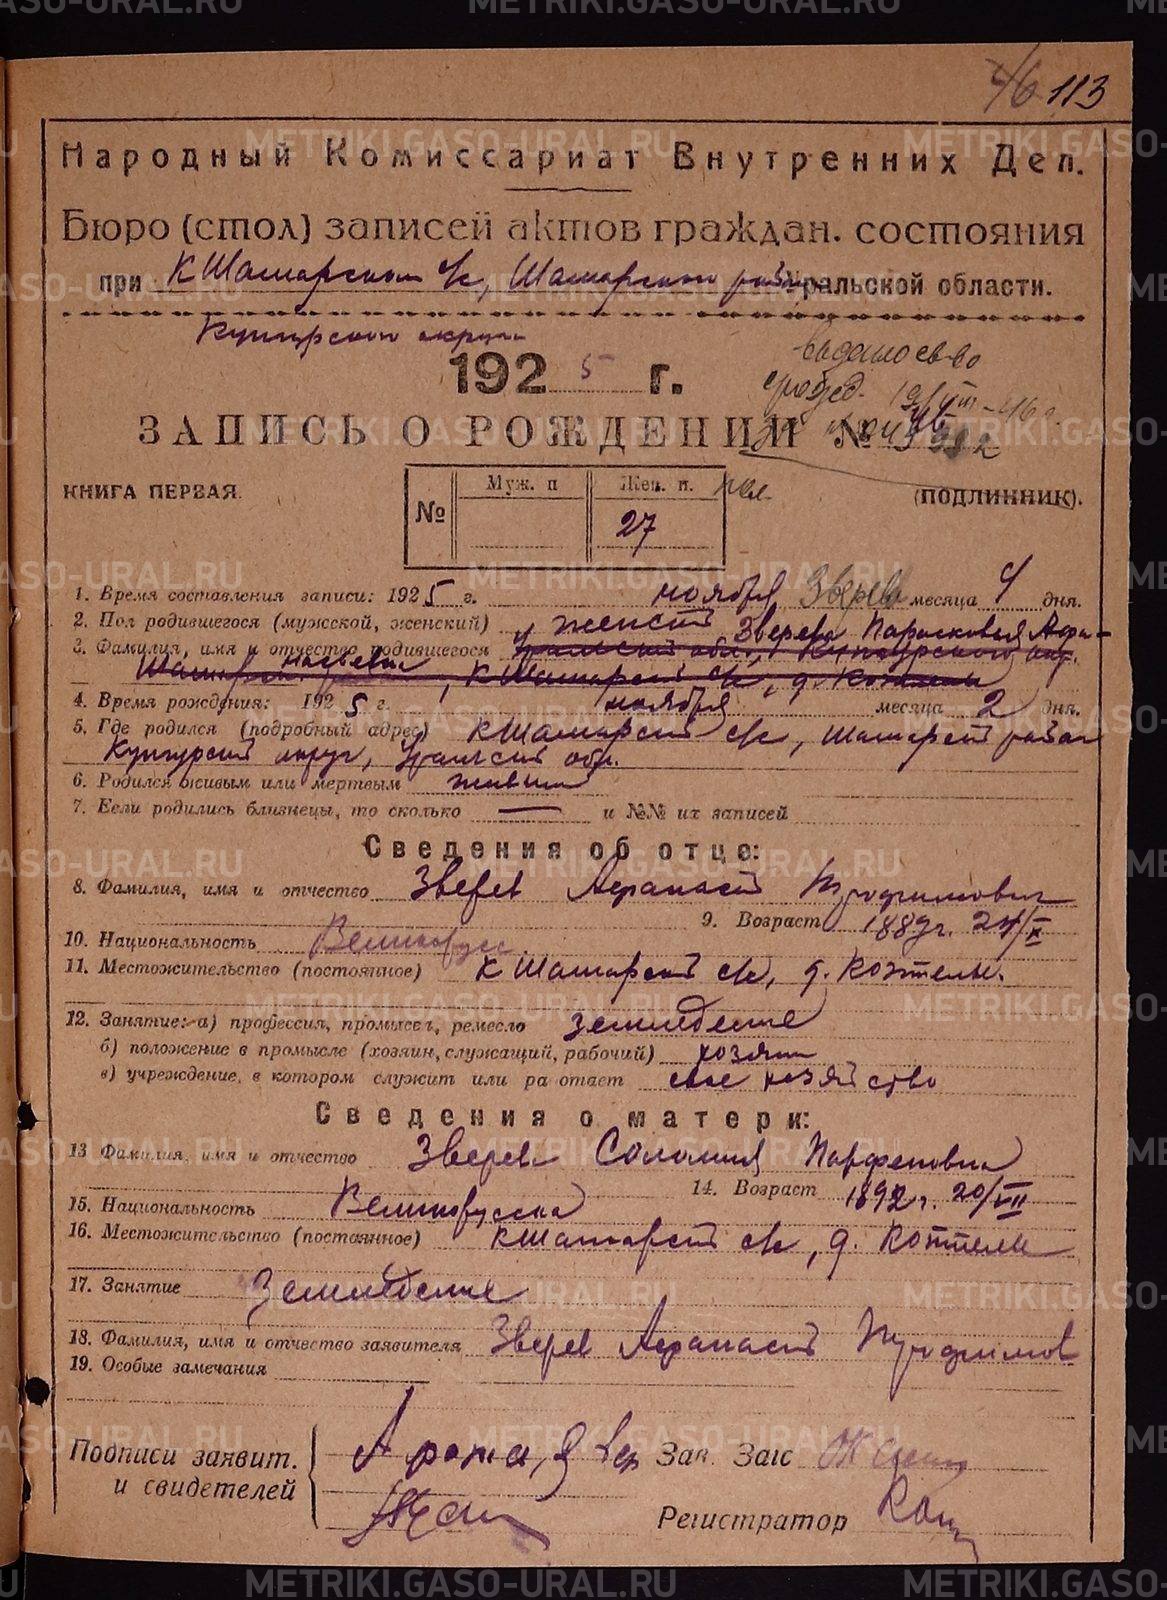 46 113
Народный Комиссариат Внутренних Дел.
Бюро (стол) записей актов граждан. состояния
при К Шамарском с/с, Шамарского рай Уральской области.
Кунгурского округа
выдано св-во
1925 г.
о рожд. 19/VIII-46 г.
ЗАПИСЬ О РОЖДЕНИИ №
КНИГА ПЕРВАЯ.
(ПОДЛИННИК).
№ Муж. п Жен. п.
27
1. Время составления записи: 1925 г. ноября месяца 4 дня.
Зверева
2. Пол родившегося (мужской, женский) женский
3. Фамилия, имя и отчество родившегося Зверева Парасковья Афа-
насьевна
Уральской обл., Кунгурского окр.
Шамарск. района, К Шамарский с/с, д. Коптелы
4. Время рождения: 1925 г. ноября месяца 2 дня.
5. Где родился (подробный адрес) К Шамарский с/с, Шамарский район
Кунгурский округ, Уральской обл.
6. Родился живым или мертвым живым
7. Если родились близнецы, то сколько — и №№ их записей
Сведения об отце:
8. Фамилия, имя и отчество Зверев Афанасий Трофимович
9. Возраст 1889 г. 24/X
10. Национальность Великорусс
11. Местожительство (постоянное) К Шамарский с/с, д. Коптелы.
12. Занятие:-а) профессия, промысел, ремесло земледелие
б) положение в промысле (хозяин, служащий, рабочий) хозяин
в) учреждение, в котором служит или ра отает свое хозяйство
Сведения о матери:
13 Фамилия, имя и отчество Зверева Соломия Парфеновна
14. Возраст 1892 г. 20/VII
15. Национальность Великорусска
16. Местожительство (постоянное) К Шамарский с/с, д. Коптелы
17. Занятие Земледелие
18. Фамилия, имя и отчество заявителя Зверев Афанасий Трофимов
19. Особые замечания
Подписи заявит. и свидетелей
Зав. Загс
Регистратор
METRIKI.GASO-URAL.RU